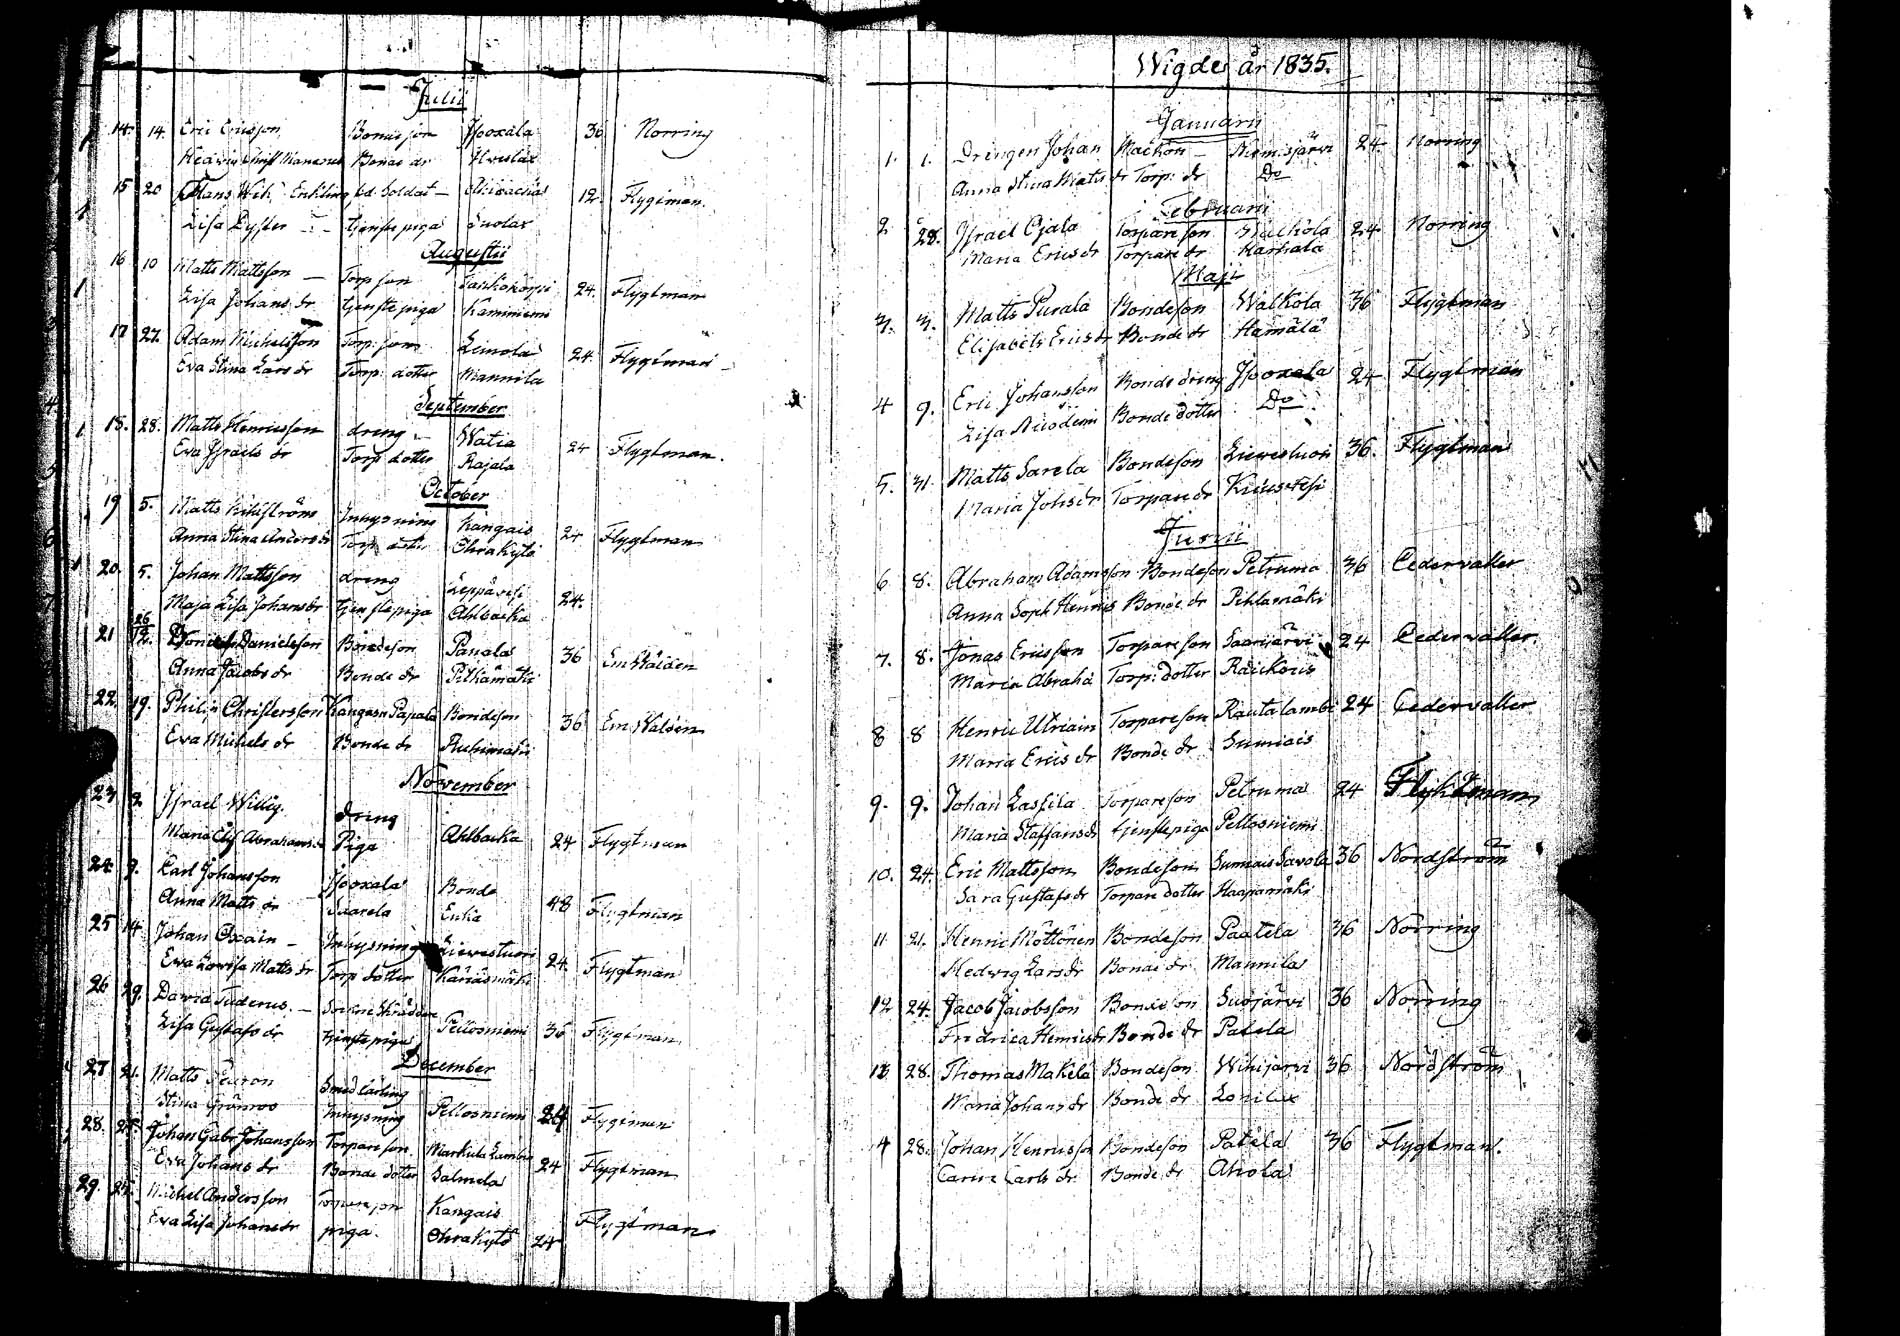 Julii
14. 14. Eric Ericsson Bondeson Isoxala 36 Norring
Hedvig Bonde dr
15 20 Frans Wilh Enkling Soldat 12. Flygtman
Lisa Lyster tjenstepiga Suolax
Augustii
16 10 Matts Mattsson Torp son 24. Flygtman
Lisa Johans dr tjenstepiga Kaminiemi
17 27. Adam Michelsson Torp: son 24. Flygtman
Eva Stina Lars dr Torp: dotter Mannila
September
18. 28. Matts Henricsson dreng Watia 24 Flygtman.
Eva Israels dr Torp dotter Rajala
October
19 5. Matts Inhysning Kangais 24 Flygtman
Anna Stina Anders dr Torp dotter Ohrakytö
20. 5. Johan Mattsson dreng Leppävesi
Maja Lisa Johans dr tjenstepiga Ahlbacka 24.
21 26/12. Danielsson Bondeson Panala 36 Em Waldén
Anna Jacobs dr Bonde dr
22. 19. Philip Christersson Kangasn Papala Bondeson 36 Em Waldén
Eva Michels dr Bonde dr Ruhimäki
November
23 2 Israel Willig dreng
Maria Abrahams dr Piga Ahlbacka 24 Flygtman
24. 9. Carl Johansson Isoxala Bonde
Anna Matts dr Saarela Enka 48 Flygtman
25 14 Johan Oxain Inhysning Lievestuori
Eva Lovisa Matts dr Torp dotter Känäsmäki 24. Flygtman
26 29. David Tuderus Sockne Skräddare
Lisa Gustafs dr tjenstepiga Pellosniemi 36 Flygtman
December
27 21. Matts
Stina Grönroos Inhysning Pellosniemi 24 Flygtman
28. 25. Johan Gabr Johansson Torpare son
Eva Johans dr Bonde dotter Salmela 24 Flygtman
29. 25. Michel Andersson Torpareson Kangais
Eva Lisa Johans dr piga. Ohrakytö 24 Flygtman
Wigde år 1835.
Januarii
1. 1. Drengen Johan Maekön Niemisjärvi 24 Norring
Anna Stina Matts dr Torp: dr Do
Februarii
2 28. Israel Ojala Torpareson Walkola 24 Norring
Maria Erics dr Torpare dr Harhala
Maji
3. 3. Matts Purala Bondeson Walkola 36 Flygtman
Elisabeth Erics dr Bonde dr Hämälä
4 9. Eric Johansson Bondedreng Isoxala 24 Flygtman
Lisa Bonde dotter Do
5. 31. Matts Sarela Bondeson Lievestuori 36. Flygtman
Maria Johs dr Torpare dr
Junii
6 8. Abraham Adamsson Bondeson Petruma 36 Cedervaller
Anna Soph Henrics Bonde dr Pihlamäki
7. 8. Jonas Ericsson Torpareson Saarijärvi 24 Cedervaller
Maria Abraha Torp: dotter Raickoris
8 8 Henric Utriain Torpareson Rautalambi 24 Cedervaller
Maria Erics dr Bonde dr Sumiais
9. 9. Johan Lassila Torpareson Petruma 24 Flyktman
Maria Staffans dr tjenstepiga Pellosniemi
10. 24. Eric Mattsson Bondeson Sumiais Savola 36 Nordström
Sara Gustafs dr Torpare dotter Haapamäki
11 21. Henric Möttönen Bondeson Paatela 36 Norring
Hedwig Lars dr Bonde dr Mannila
12 24. Jacob Jacobsson Bondeson Suojärvi 36 Norring
Fredrica Henrics dr Bonde dr Patela
13 28. Thomas Makelä Bondeson Wihijärvi 36 Nordström
Maria Johans dr Bonde dr
14 28. Johan Henricsson Bondeson Patela 36 Flygtman.
Carin Carls dr Bonde dr Ahola